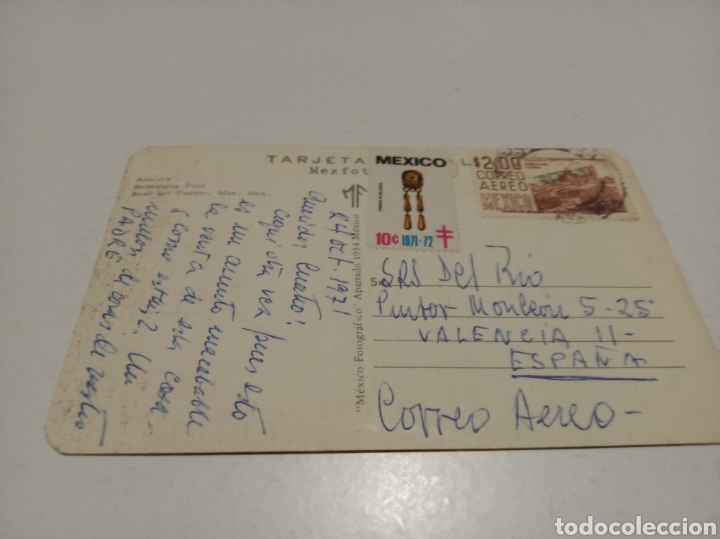 TARJETA
Mexfot
Alberca
Swimming Pool
Real del Pueblo, Maz. Mex.
MEXICO
10c 1971-72
$2.00
CORREO
AEREO
MEXICO
24 Oct. 1971
Queridos
aquí otra vez pues esto
es un asunto inacabable
la venta de esta casa
¿Como estais? Un
de vuestro
PADRE
"México Fotográfico" Apartado 1934 México
SRS Del Rio
Pintor Monleón 5-25
VALENCIA 11-
ESPAÑA
Correo Aereo-
todocoleccion